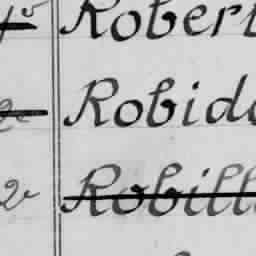 Robert
2e Robid
2e Robill